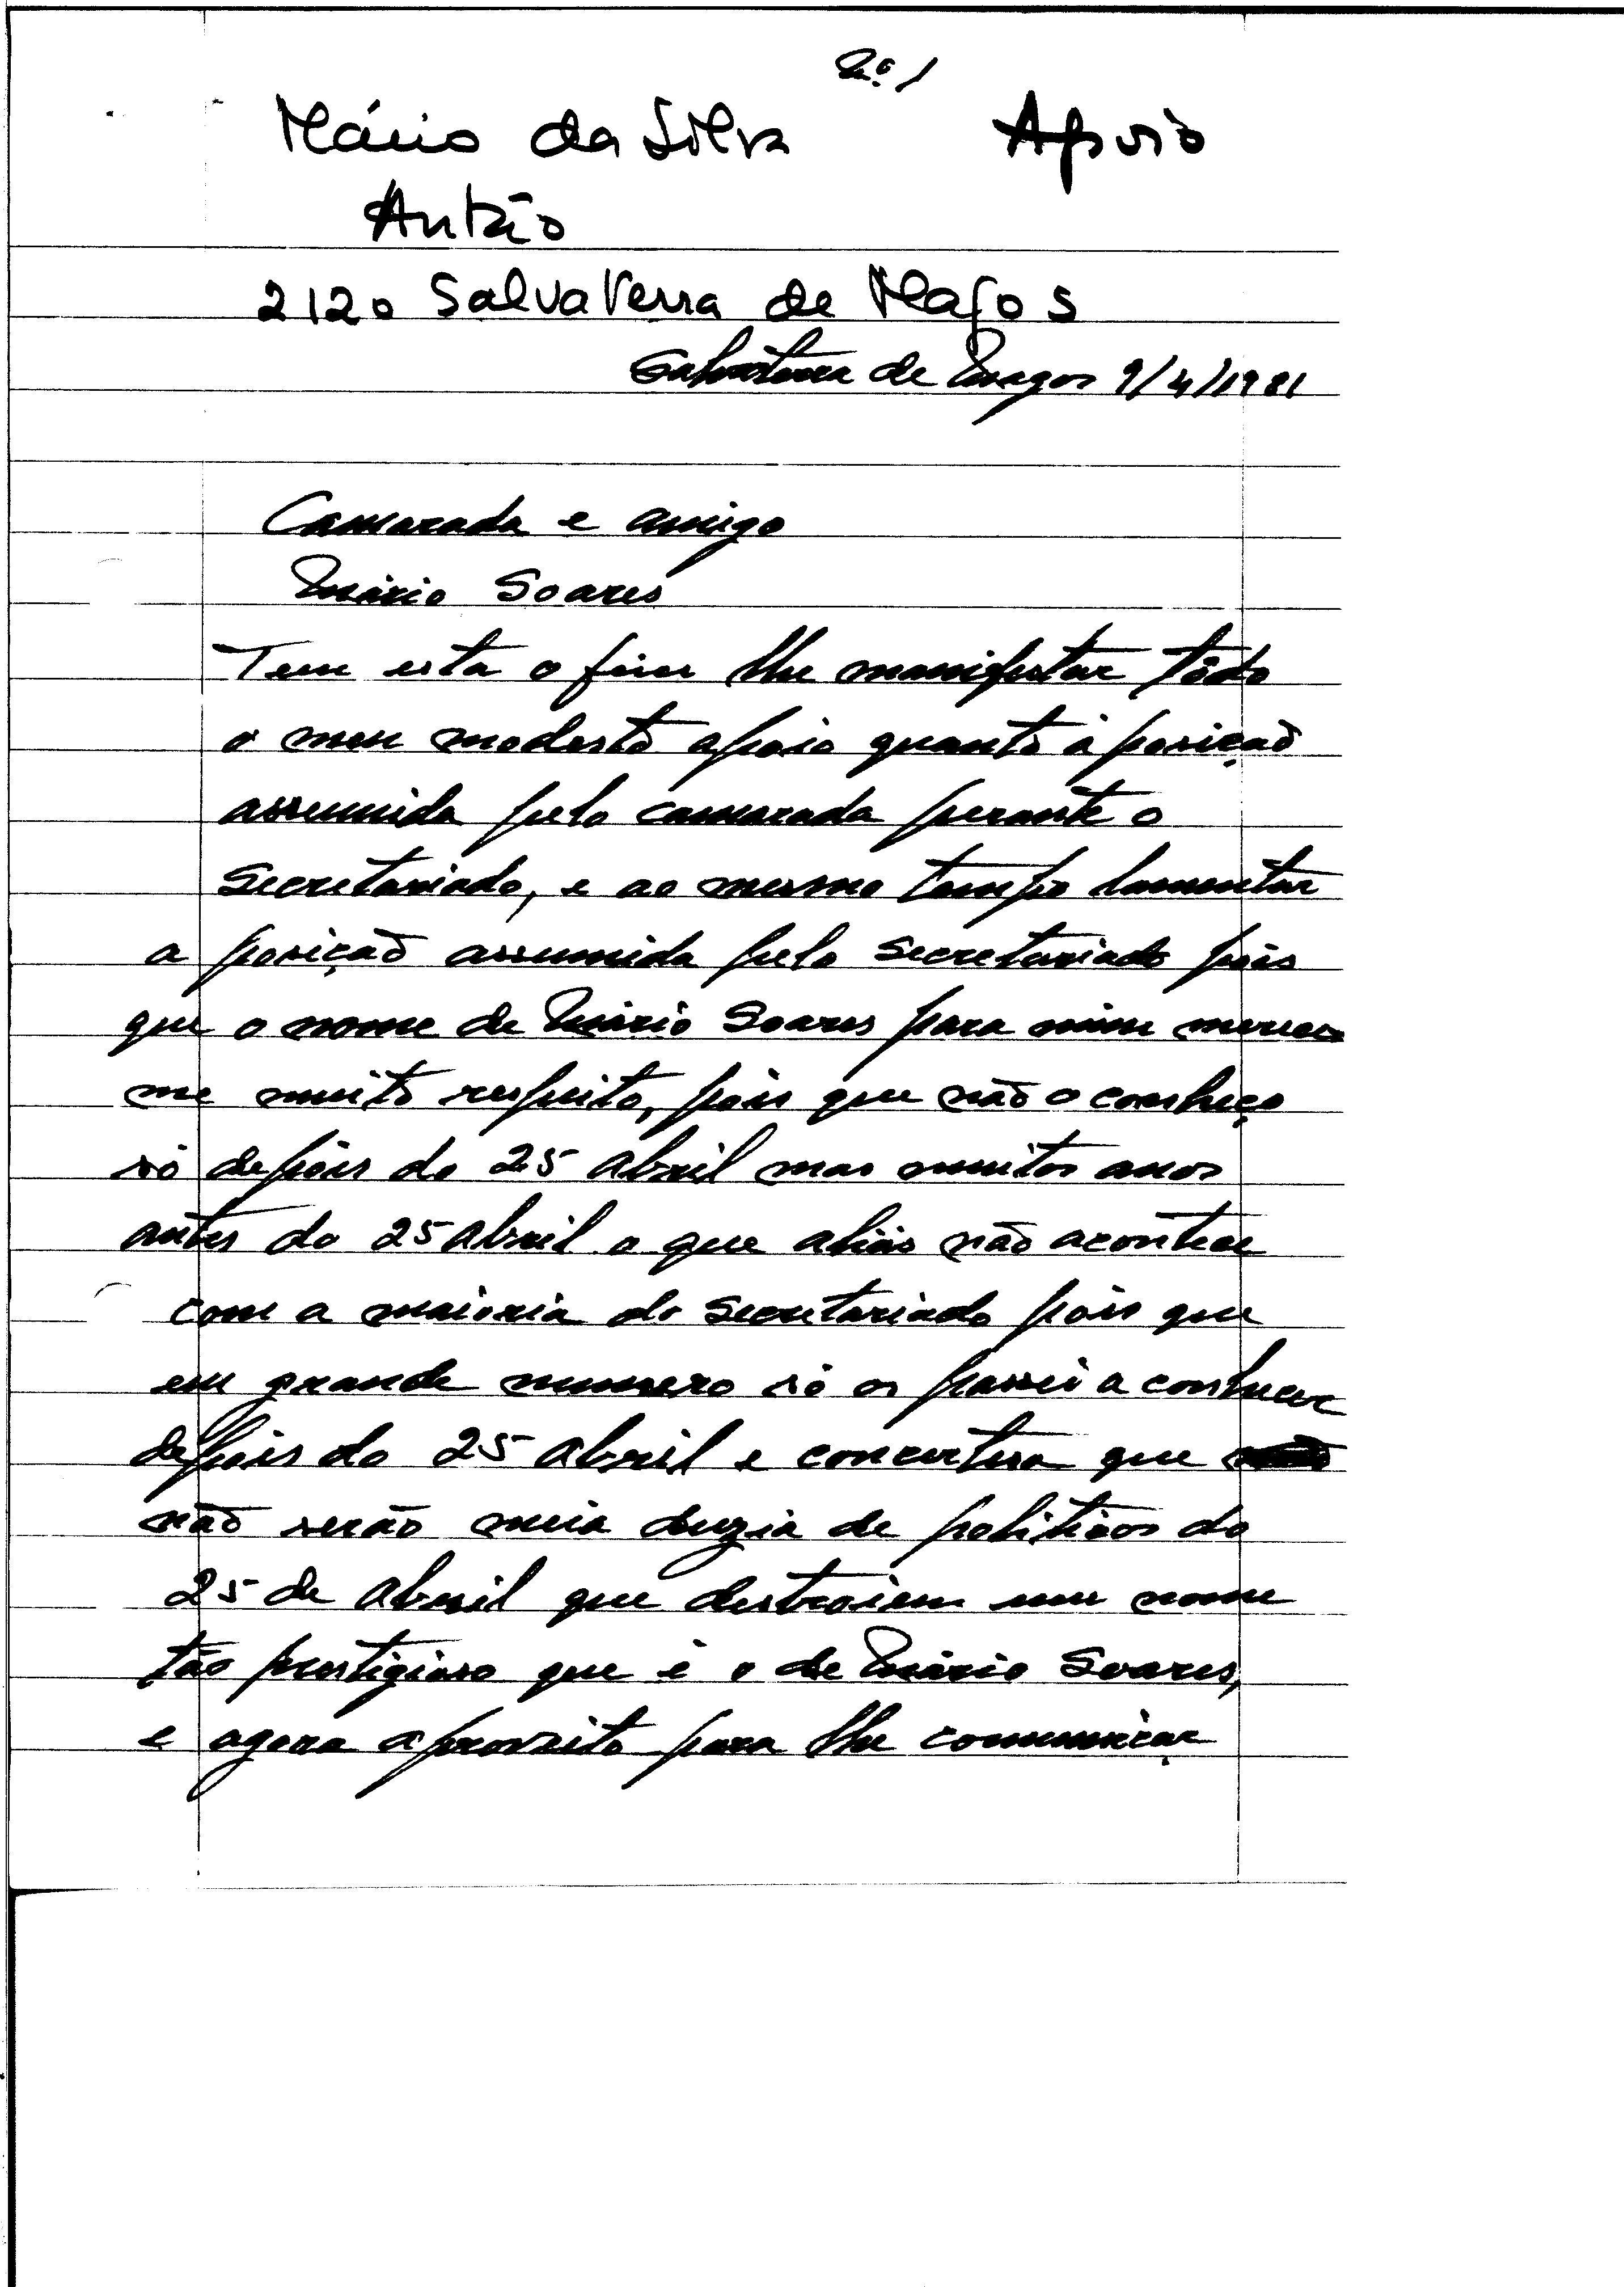 Nº. 1
Mário da Silva Apoio
Antão
2120 Salvaterra de Magos
Salvaterra de Magos 9/4/1981
Camarada e amigo
Mário Soares
Tem esta o fim lhe manifestar tôdo
o meu modesto apoio quanto á posição
assumida pelo camarada perante o
Secretariado, e ao mesmo tempo lamentar
a posição assumida pelo Secretariado pois
que o nome de Mário Soares para mim merece
me muito respeito, pois que não o conheço
só depois do 25 abril mas muitos anos
antes do 25 abril o que aliás não acontece
com a maioria do Secretariado pois que
em grande numero só os passei a conhecer
depois do 25 abril e concerteza que
não serão meia duzia de politicos do
25 de abril que destroiem um nome
tão prestigioso que é o de Mário Soares,
e agora aproveito para lhe comunicar